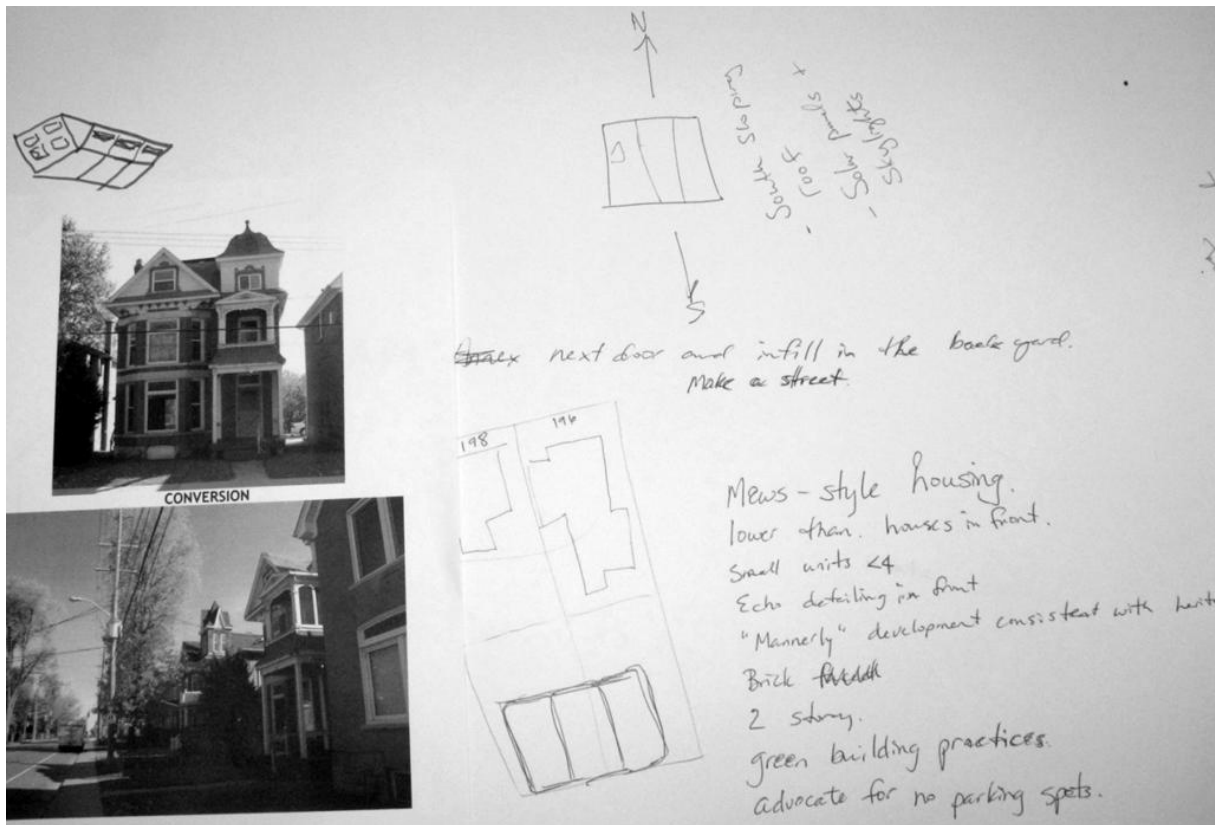 N
- South Sloping
roof
- Solar panels +
Skylights
S
next door and infill in the back yard.
Make a street.
CONVERSION
198
196
Mews-style housing.
lower than. houses in front.
Small units <4
Echo detailing in front
"Mannerly" development consistent with
Brick
2 story.
green building practices.
advocate for no parking spots.